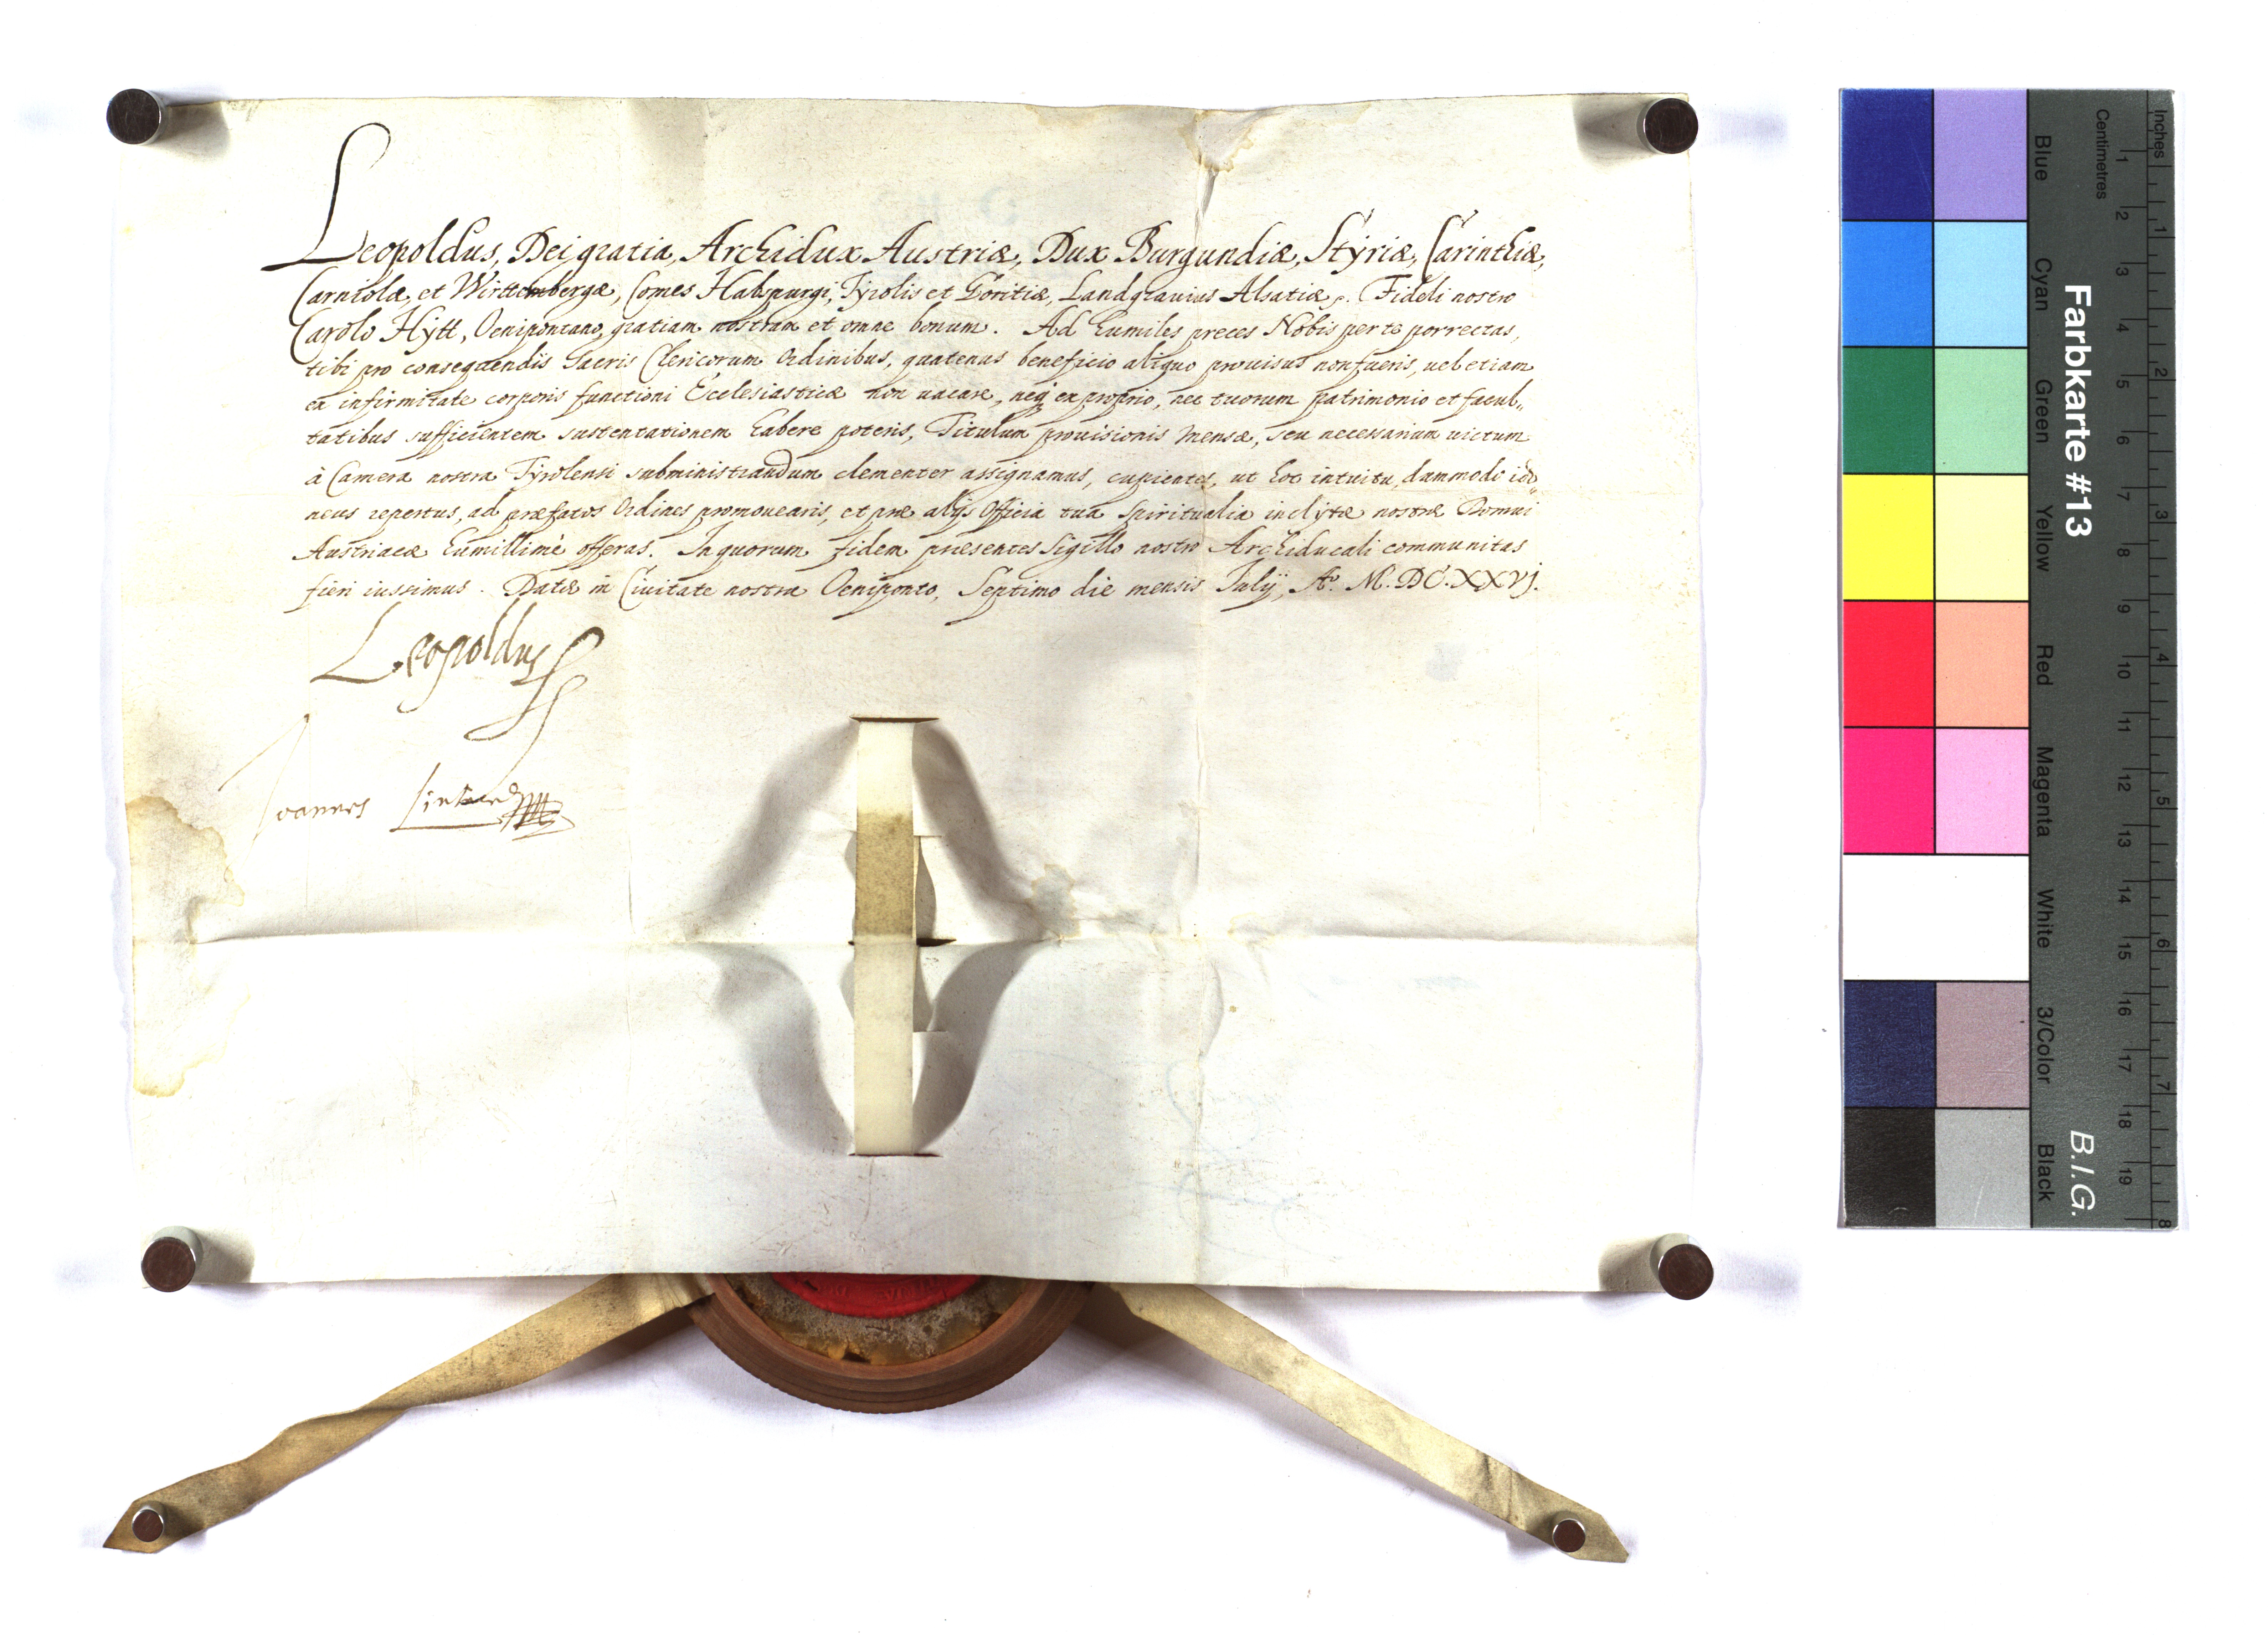 Leopoldus, Dei gratia, Archidux Austriæ, Dux Burgundiæ, Stÿriæ, Carinthiæ,
Carniolæ, et Wirttembergæ, Comes Habspurgi, Tÿrolis et Goritiæ, Landgrauius Alsatiæ. Fideli nostro
Carolo Hÿtt, Oenipontano, gratiam nostram et omne bonum. Ad humiles preces Nobis per te porrectas,
tibi pro consequendis Sacris Clericorum Ordinibus, quatenus beneficio aliquo prouisus non fueris, uel etiam
ex infirmitate corporis functioni Ecclesiasticæ non uacare, neq ex proprio, nec tuorum patrimonio et facul„
tatibus sufficientem sustentationem habere poteris, Titulum prouisionis mensæ, seu necessarium uictum
à Camera nostra Tÿrolensi subministrandum clementer assignamus, cupientes, ut hoc intuitu, dummodo ido„
neus repertus, ad præfatos Ordines promouearis, et præ alijs Officia tua Spiritualia inclÿtæ nostræ Domui
Austriacæ humillimè offeras. In quorum fidem præsentes Sigillo nostro Archiducali communitas
fieri iussimus. Datæ in Ciuitate nostra Oeniponto, Septimo die mensis Julÿ, Aº. M.DC.XXVJ.
Leopoldus
Joannes
Inches 1 2 3 4 5 6 7 8
Centimetres 1 2 3 4 5 6 7 8 9 10 11 12 13 14 15 16 17 18 19
Farbkarte #13 B.I.G.
Blue Cyan Green Yellow Red Magenta White 3/Color Black